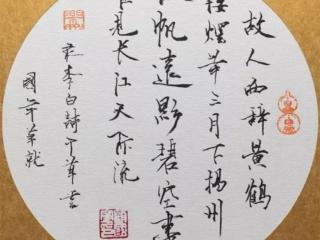 故人西辞黄鹤
楼烟华三月下扬州
孤帆远影碧空尽
唯见长江天际流
李白诗
国平草就